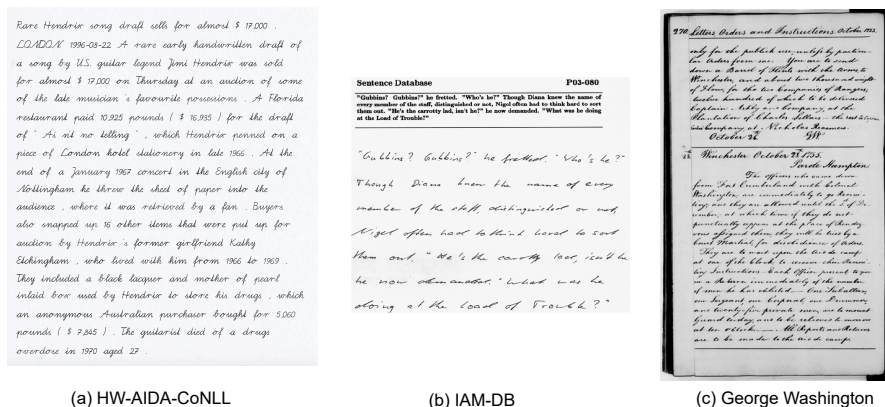 Rare Hendrix song draft sells for almost $ 17,000 .
LONDON 1996-08-22 A rare early handwritten draft of
a song by U.S. guitar legend Jimi Hendrix was sold
for almost $ 17,000 on Thursday at an auction of some
of the late musician 's favourite possessions . A Florida
restaurant paid 10,925 pounds ( $ 16,935 ) for the draft
of " Ai n't no telling " , which Hendrix penned on a
piece of London hotel stationery in late 1966 . At the
end of a January 1967 concert in the English city of
Nottingham he threw the sheet of paper into the
audience , where it was retrieved by a fan . Buyers
also snapped up 16 other items that were put up for
auction by Hendrix 's former girlfriend Kathy
Etchingham , who lived with him from 1966 to 1969 .
They included a black lacquer and mother of pearl
inlaid box used by Hendrix to store his drugs , which
an anonymous Australian purchaser bought for 5,060
pounds ( $ 7,845 ) . The guitarist died of a drugs
overdose in 1970 aged 27 .
(a) HW-AIDA-CoNLL
Sentence Database P03-080
"Gubbins? Gubbins?" he fretted. "Who's he?" Though Diana knew the name of
every member of the staff, distinguished or not, Nigel often had to think hard to sort
them out. "He's the carrotty lad, isn't he?" he now demanded. "What was he doing
at the Load of Trouble?"
"Gubbins? Gubbins?" he fretted. "Who's he?"
Though Diana knew the name of every
member of the staff, distinguished or not,
Nigel often had to think hard to sort
them out. "He's the carrotty lad, isn't he?"
he now demanded. "What was he
doing at the Load of Trouble?"
(b) IAM-DB
270 Letters Orders and Instructions October 1755.
only for the publick use, unless by particu-
lar Orders from me. You are to send
down a Barrel of Flints with the Arms, to
Winchester, and about two thousand weight
of Flour, for the two Companies of Rangers;
twelve hundred of which to be delivered
Captain Ashby and Company, at the
Plantation of Charles Sellars - the rest to Captain
Cocks Company at Nicholas Reasmers.
October 26. GW
Winchester October 28th 1755.
Parole Hampton.
The Officers who came down
from Fort Cumberland with Colonel
Washington, are immediately to go Recrui-
ting; and they are allowed until the 1st of De-
cember; at which time if they do not
punctually appear at the place of Rendez-
vous assigned them, they will be tried by a
Court Martial, for disobedience of Orders.
They are to wait upon the Aid de camp
at one of the clock, to receive their Recrui-
ting Instructions. Each Officer present to give
in a Return immediately of the number
of men he has enlisted. One Subaltern,
one Sergeant one Corporal, one Drummer,
and twenty-five private men, are to mount
Guard to day, and to be relieved to morrow
at ten o'clock. All Reports and Returns
are to be made to the Aid de camp.
(c) George Washington